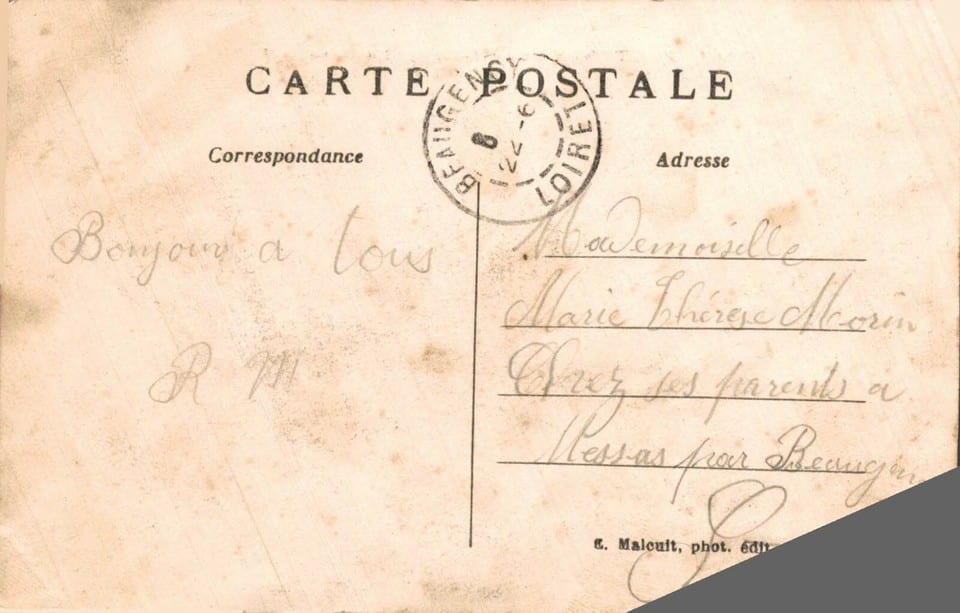 CARTE POSTALE
BEAUGENCY
LOIRET
8
22-6
Correspondance
Adresse
Bonjour a tous
R M
Mademoiselle
Marie Thérèse Morin
Chez ses parents a
Messas par Beaugen
E. Malcuit, phot. édit